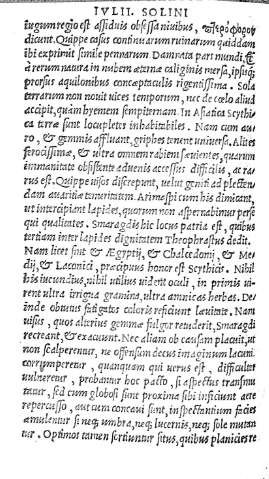 IVLII. SOLINI
iugum regio est assiduis obsessa niuibus, πτεροφορον
dicunt. Quippe casus continuarum ruinarum quiddam
ibi exprimit simile pennarum. Damnata pars mundi, &
à rerum natura in nubem æternæ caliginis mersa, ipsisq́;
prorsus aquilonibus conceptaculis rigentissima. Sola
terrarum non nouit uices temporum, nec de cœlo aliud
accipit, quàm hyemem sempiternam. In Asiatica Scythi
ca terræ sunt locupletes inhabitabiles. Nam cum au
ro, & gemmis affluant, griphes tenent uniuersa. Alites
ferocissimæ, & ultra omnem rabiem sæuientes, quarum
immanitate obsistente aduenis accessus difficilis, ac ra
rus est. Quippe uisos discerpunt, uelut geniti ad plecten
dam auaritiæ temeritatem. Arimaspi cum his dimicant,
ut intercipiant lapides, quorum non aspernabimur perse
qui qualitates. Smaragdis hic locus patria est, quibus
tertiam inter lapides dignitatem Theophrastus dedit.
Nam licet sint & Ægyptij, & Chalcedonij, & Me
dij, & Laconici, præcipuus honor est Scythicis. Nihil
his iucundius, nihil utilius uident oculi, in primis ui-
rent ultra irrigua gramina, ultra amnicas herbas. De-
inde obtutus fatigatos coloris reficiunt lænitate. Nam
uisus, quos alterius gemmæ fulgor retuderit, Smaragdi
recreant, & exacuunt. Nec aliam ob causam placuit, ut
non scalperentur, ne offensum decus imaginum lacunis
corrumperetur, quanquam qui uerus est, difficulter
uulneretur, probantur hoc pacto, si aspectus transmit
tatur, sed cum globosi sunt proxima sibi inficiunt aere
repercusso, aut cum concaui sunt, inspectantium facies
æmulantur si neq; umbra, neq; lucernis, neq; sole mutan
tur. Optimos tamen sortiuntur situs, quibus planicies re